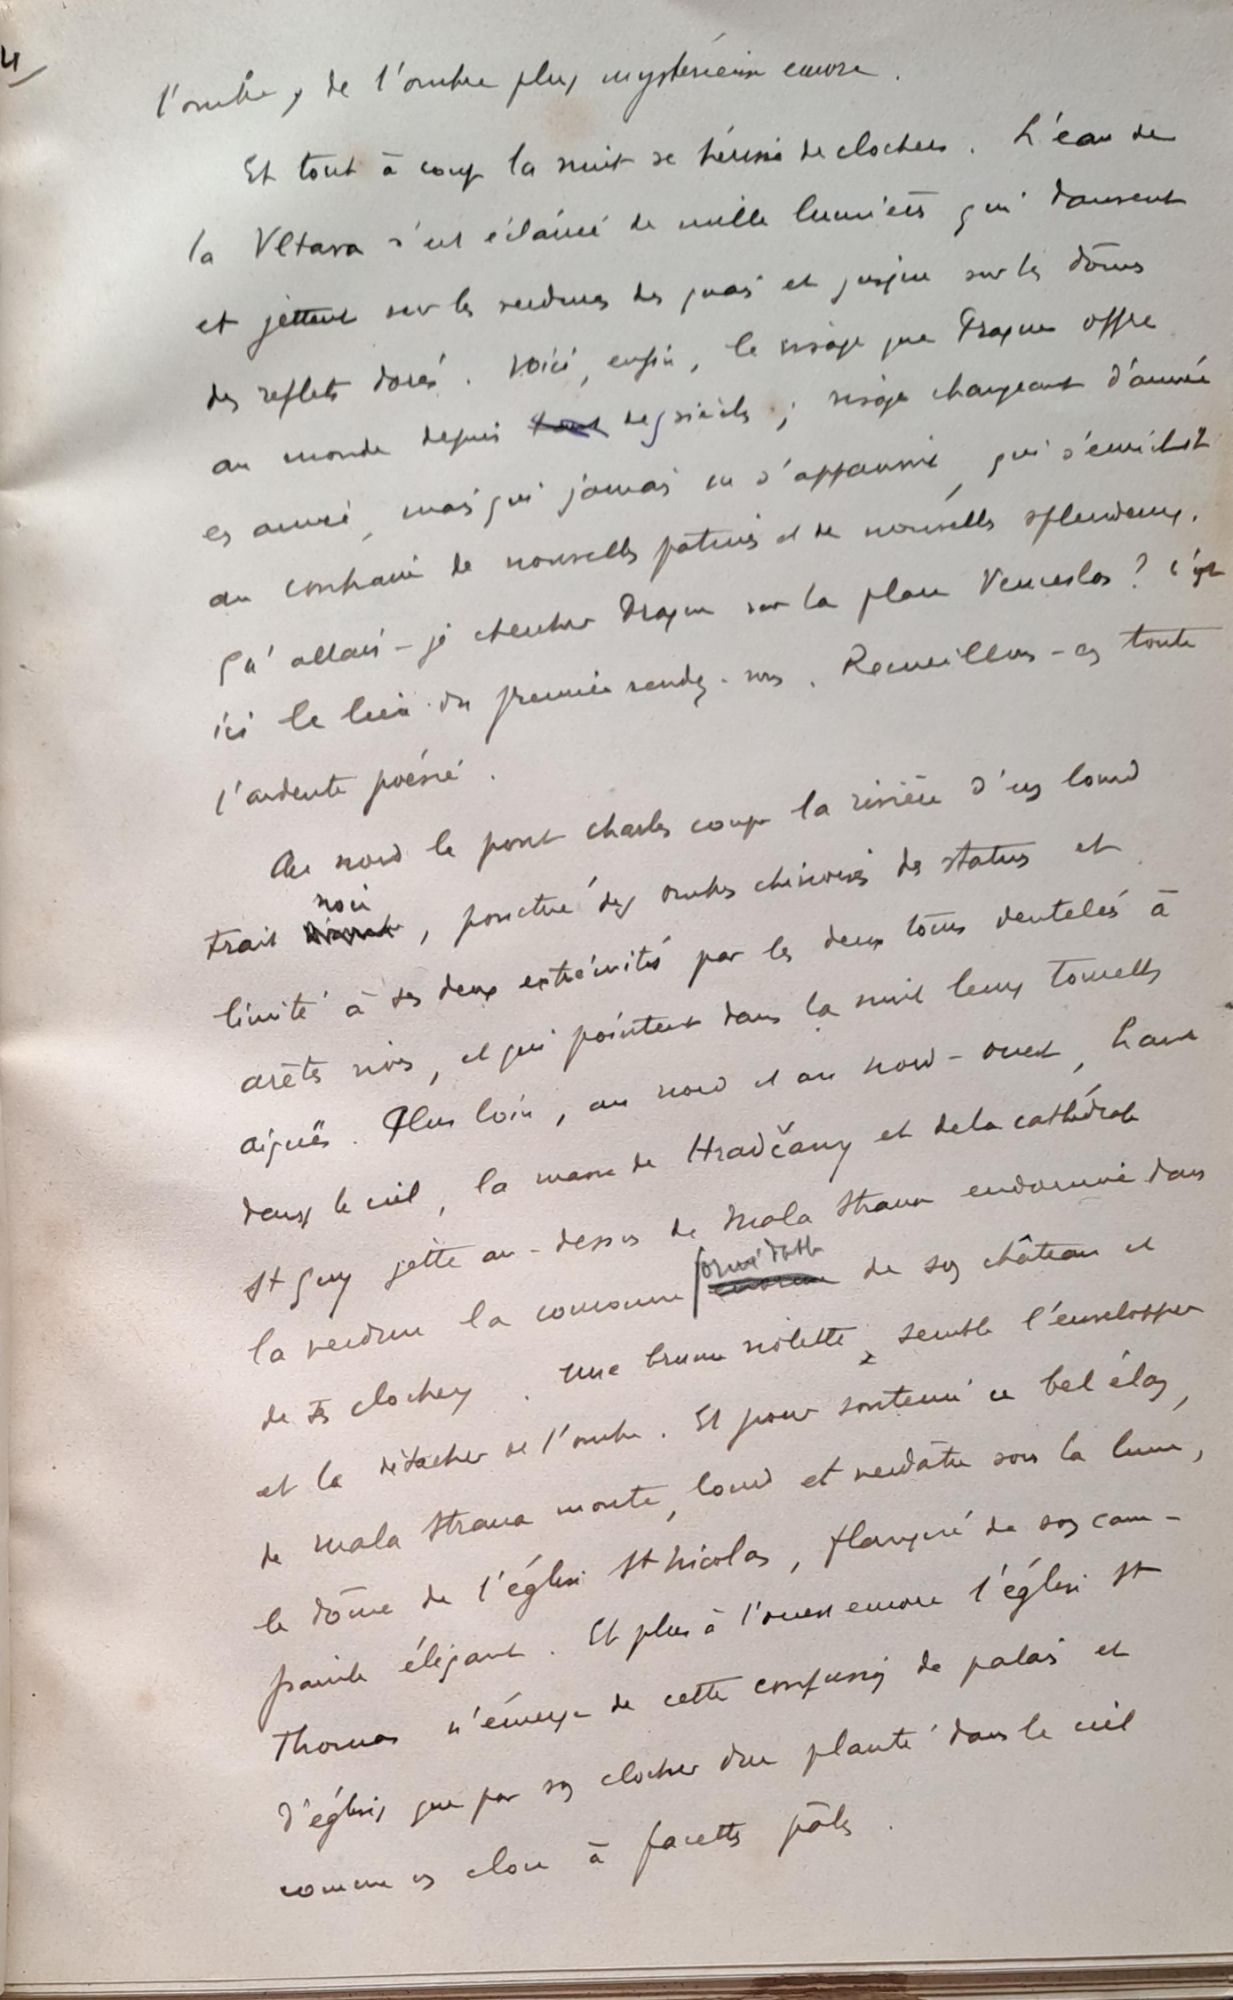 4
l'ombre, de l'ombre plus mystérieuse encore.
Et tout à coup la nuit se hérisse de clochers. L'eau de
la Vltava s'est éclairée de mille lumières qui dansent
et jettent sur les verdures des quais et jusque sur les dômes
des reflets dorés. Voici, enfin, le visage que Prague offre
au monde depuis des siècles ; visage changeant d'année
en année, mais qui jamais ne s'appauvrit, qui s'enrichit
au contraire de nouvelles patines et de nouvelles splendeurs.
Qu'allais-je chercher Prague sur la place Venceslas ? C'est
ici le lieu du premier rendez-vous. Recueillons-en toute
l'ardente poésie.
Au nord le pont Charles coupe la rivière d'un lourd
trait noir, ponctué des ombres chinoises des statues et
limité à ses deux extrémités par les deux tours dentelées à
arêtes vives, et qui pointent dans la nuit leurs tourelles
aiguës. Plus loin, au nord et au nord-ouest, haut
dans le ciel, la masse de Hradčany et de la cathédrale
St Guy jette au-dessus de Mala Strana endormie dans
la verdure la couronne formidable de son château et
de ses clochers. Une brume violette semble l'envelopper
et la détacher de l'ombre. Et pour soutenir ce bel élan,
de Mala Strana monte, lourd et verdâtre sous la lune,
le dôme de l'église St Nicolas, flanqué de son cam-
panile élégant. Et plus à l'ouest encore l'église St
Thomas n'émerge de cette confusion de palais et
d'églises que par son clocher dru planté dans le ciel
comme un clou à facettes pâles.